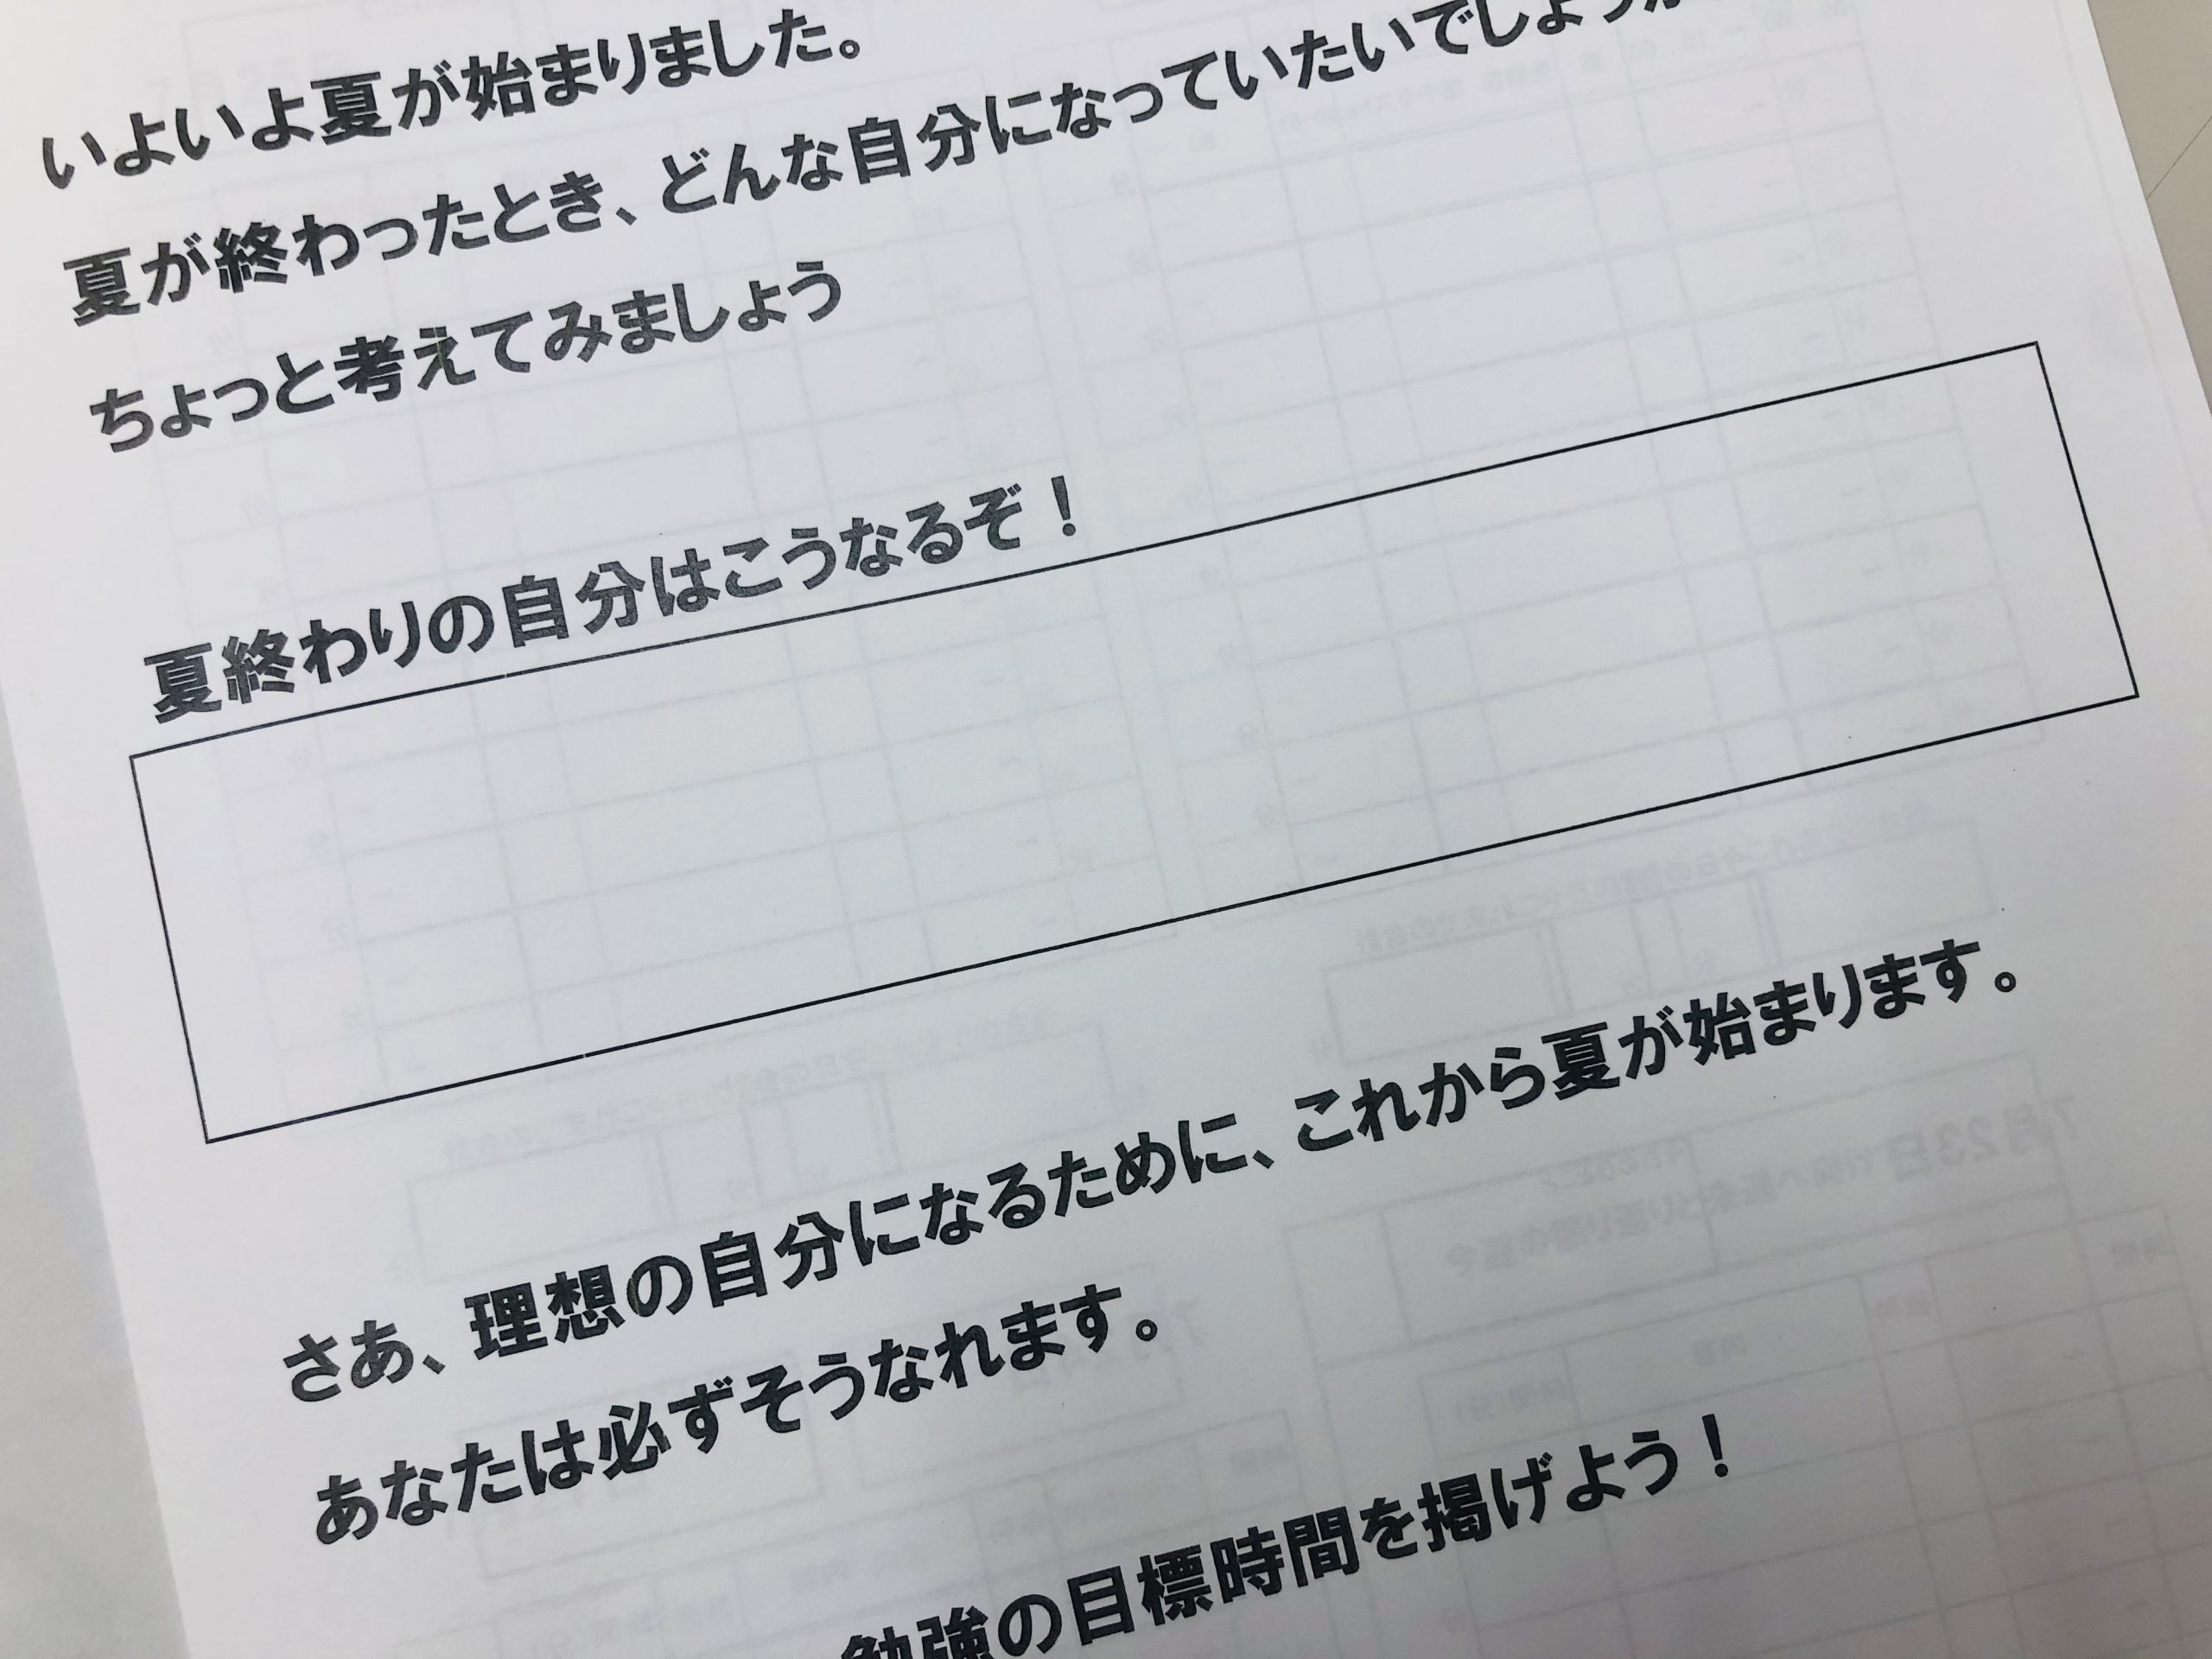 いよいよ夏が始まりました。
夏が終わったとき、どんな自分になっていたいでしょうか
ちょっと考えてみましょう
夏終わりの自分はこうなるぞ！
さあ、理想の自分になるために、これから夏が始まります。
あなたは必ずそうなれます。
勉強の目標時間を掲げよう！